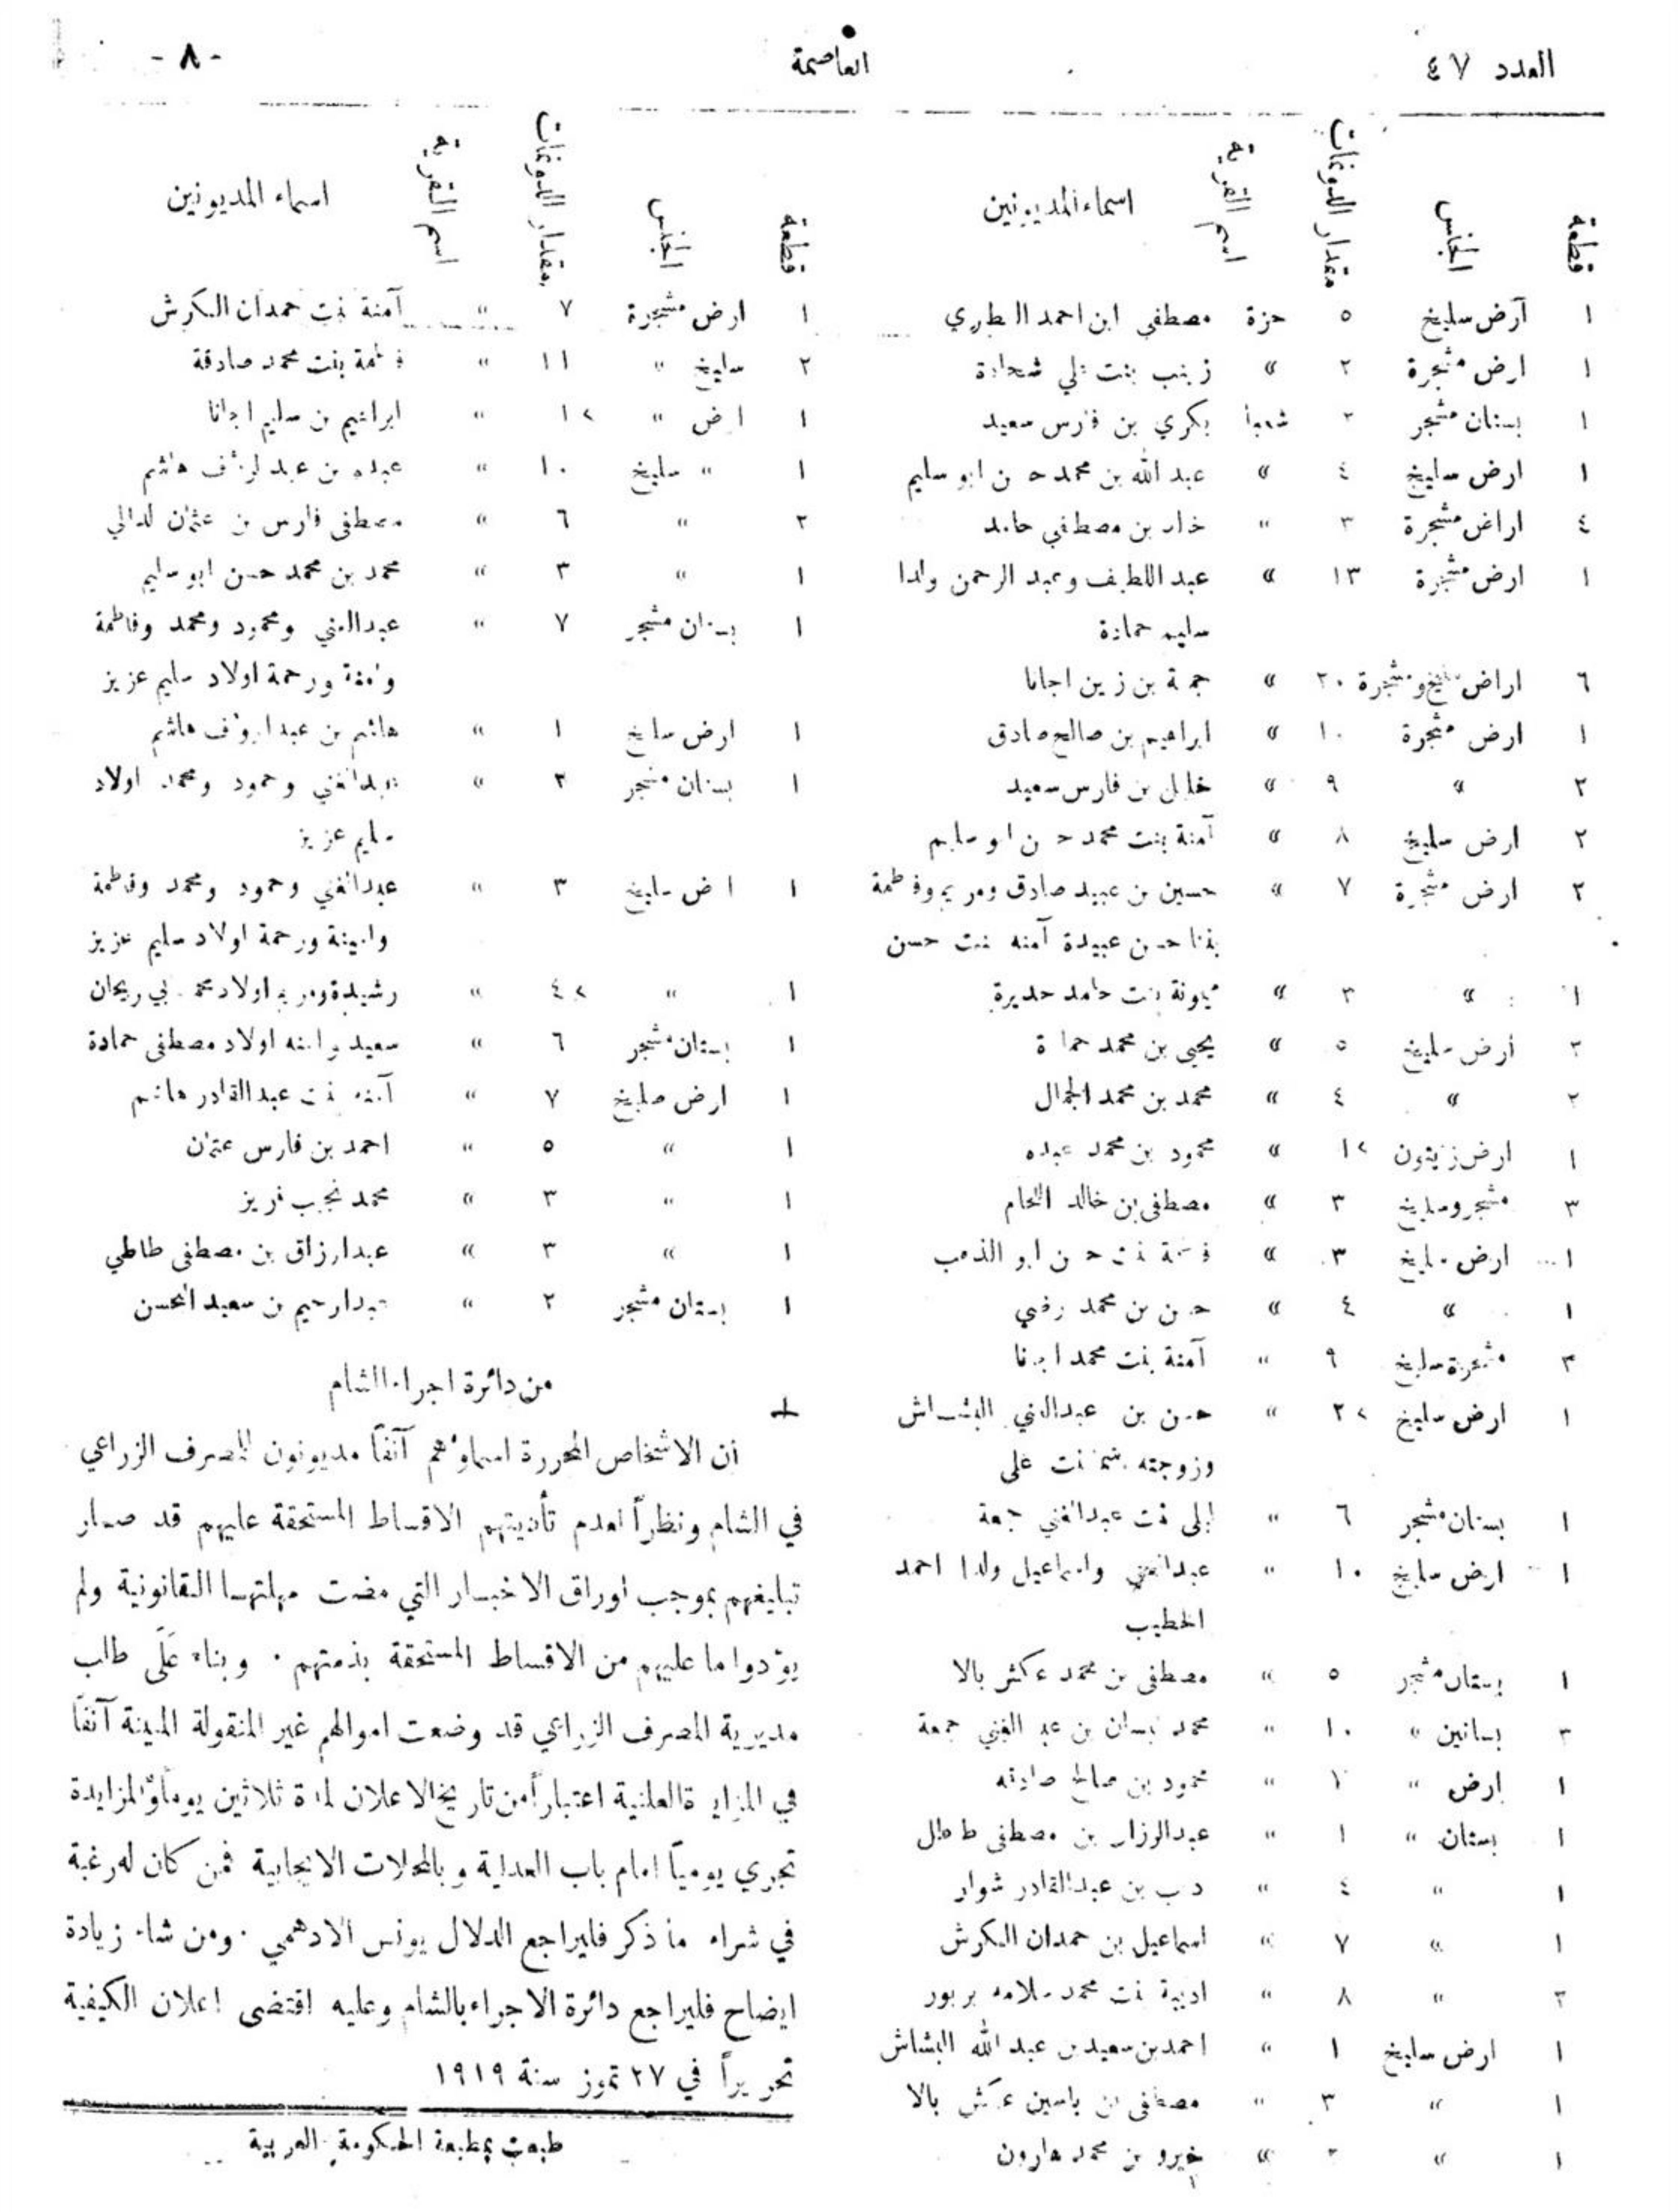 العدد ٤٧
العاصمة
- ٨ -
قطعة الجنس مقدار الدونمات اسم القرية اسماء المديونين
١ أرض سليخ ٥ حزة مصطفى ابن احمد الطرري
١ ارض مشجرة ٢ » زينب بنت علي شحادة
١ بستان مشجر بكري بن فارس سعيد
١ ارض سليخ ٤ » عبد الله بن محمد حسن ابو سليم
٤ اراض مشجرة ٣ » بن مصطفى حامد
١ ارض مشجرة ١٣ » عبد اللطيف وعبد الرحمن ولدا
سليم حمادة
٦ اراض سليخ ومشجرة ٢٠ » جمعة بن زين اجانا
١ ارض مشجرة ١٠ » ابراهيم بن صالح صادق
٢ » ٩ » خليل بن فارس سعيد
٢ ارض سليخ ٨ » آمنة بنت محمد حسن ابو سليم
٢ ارض مشجرة ٧ » حسين بن عبيد صادق ومريم وفاطمة
بنتا حسن عبيدة آمنه بنت حسن
١ » ٣ » بنت حامد حديرة
٣ أرض سليخ ٥ » يحيى بن محمد حمادة
٢ » ٤ » محمد بن محمد الجمال
١ ارض زيتون ١٢ » محمود بن محمد عبده
٣ مشجر وسليخ ٣ » مصطفى بن خالد اللحام
١ ارض سليخ ٣ » فاطمة بنت حسن ابو الذهب
١ » ٤ » حسن بن محمد رضي
٣ مشجرة سليخ ٩ » آمنة بنت محمد اجانا
١ ارض سليخ ٢٢ » حسن بن عبدالغني البشاش
وزوجته بنت علي
١ بستان مشجر ٦ » ليلى بنت عبدالغني جمعة
١ ارض سليخ ١٠ » عبدالغني واسماعيل ولدا احمد
الخطيب
١ بستان مشجر ٥ » مصطفى بن محمد عكش بالا
٣ بساتين » ١٠ » محمد بن عبد الغني جمعة
١ ارض » » محمود بن صالح صادقه
١ بستان » ١ » بن مصطفى
١ » ٤ » بن عبدالقادر شوار
١ » ٧ » اسماعيل بن حمدان الكرش
٣ » ٨ » اديبة بنت محمد سلامه بربور
١ ارض سليخ ١ » احمد بن سعيد بن عبد الله البشاش
١ » ٣ » مصطفى بن ياسين عكش بالا
١ » » خيرو بن محمد هارون
قطعة الجنس مقدار الدونمات اسم القرية اسماء المديونين
١ ارض مشجرة ٧ » آمنة بنت حمدان الكرش
٢ سليخ » ١١ » فاطمة بنت محمد صادقة
١ ارض » ١٢ » ابراهيم بن سليم اجانا
١ » سليخ ١٠ » عبده بن عبد الرؤف هاشم
٢ » ٦ » مصطفى فارس بن عثمان
١ » ٣ » محمد بن محمد حسن ابو سليم
١ بستان مشجر ٧ » عبدالغني ومحمود ومحمد وفاطمة
وامينة ورحمة اولاد سليم عزيز
١ ارض سليخ ١ » هاشم بن عبد الرؤف هاشم
١ بستان مشجر ٣ » عبدالغني وحمود ومحمد اولاد
سليم عزيز
١ ارض سليخ ٣ » عبدالغني وحمود ومحمد وفاطمة
وامينة ورحمة اولاد سليم عزيز
١ » ٤٢ » رشيدة ومريم اولاد محمد ابي ريحان
١ بستان مشجر ٦ » سعيد وامنه اولاد مصطفى حمادة
١ ارض سليخ ٧ » آمنه بنت عبدالقادر هاشم
١ » ٥ » احمد بن فارس عثمان
١ » ٣ » محمد نجيب فريز
١ » ٣ » عبدارزاق بن مصطفى طاطي
١ بستان مشجر ٢ » عبدارحيم بن سعيد المحسن
من دائرة اجراء الشام
أن الاشخاص المحررة اسماؤهم آنفاً مديونون للمصرف الزراعي
في الشام ونظراً لعدم تأديتهم الاقساط المستحقة عليهم قد صار
تبليغهم بموجب اوراق الاخبار التي مضت مهلتها القانونية ولم
يؤدوا ما عليهم من الاقساط المستحقة بذمتهم . وبناء عَلَى طلب
مديرية المصرف الزراعي قد وضعت اموالهم غير المنقولة المبينة آنفاً
في المزايدة العلنية اعتباراً من تاريخ الاعلان لمدة ثلاثين يوماً والمزايدة
تجري يومياً امام باب العدلية وبالمحلات الايجابية فمن كان له رغبة
في شراء ما ذكر فليراجع الدلال يونس الادهمي . ومن شاء زيادة
ايضاح فليراجع دائرة الاجراء بالشام وعليه اقتضى اعلان الكيفية
تحريراً في ٢٧ تموز سنة ١٩١٩
طبعت بمطبعة الحكومة العربية